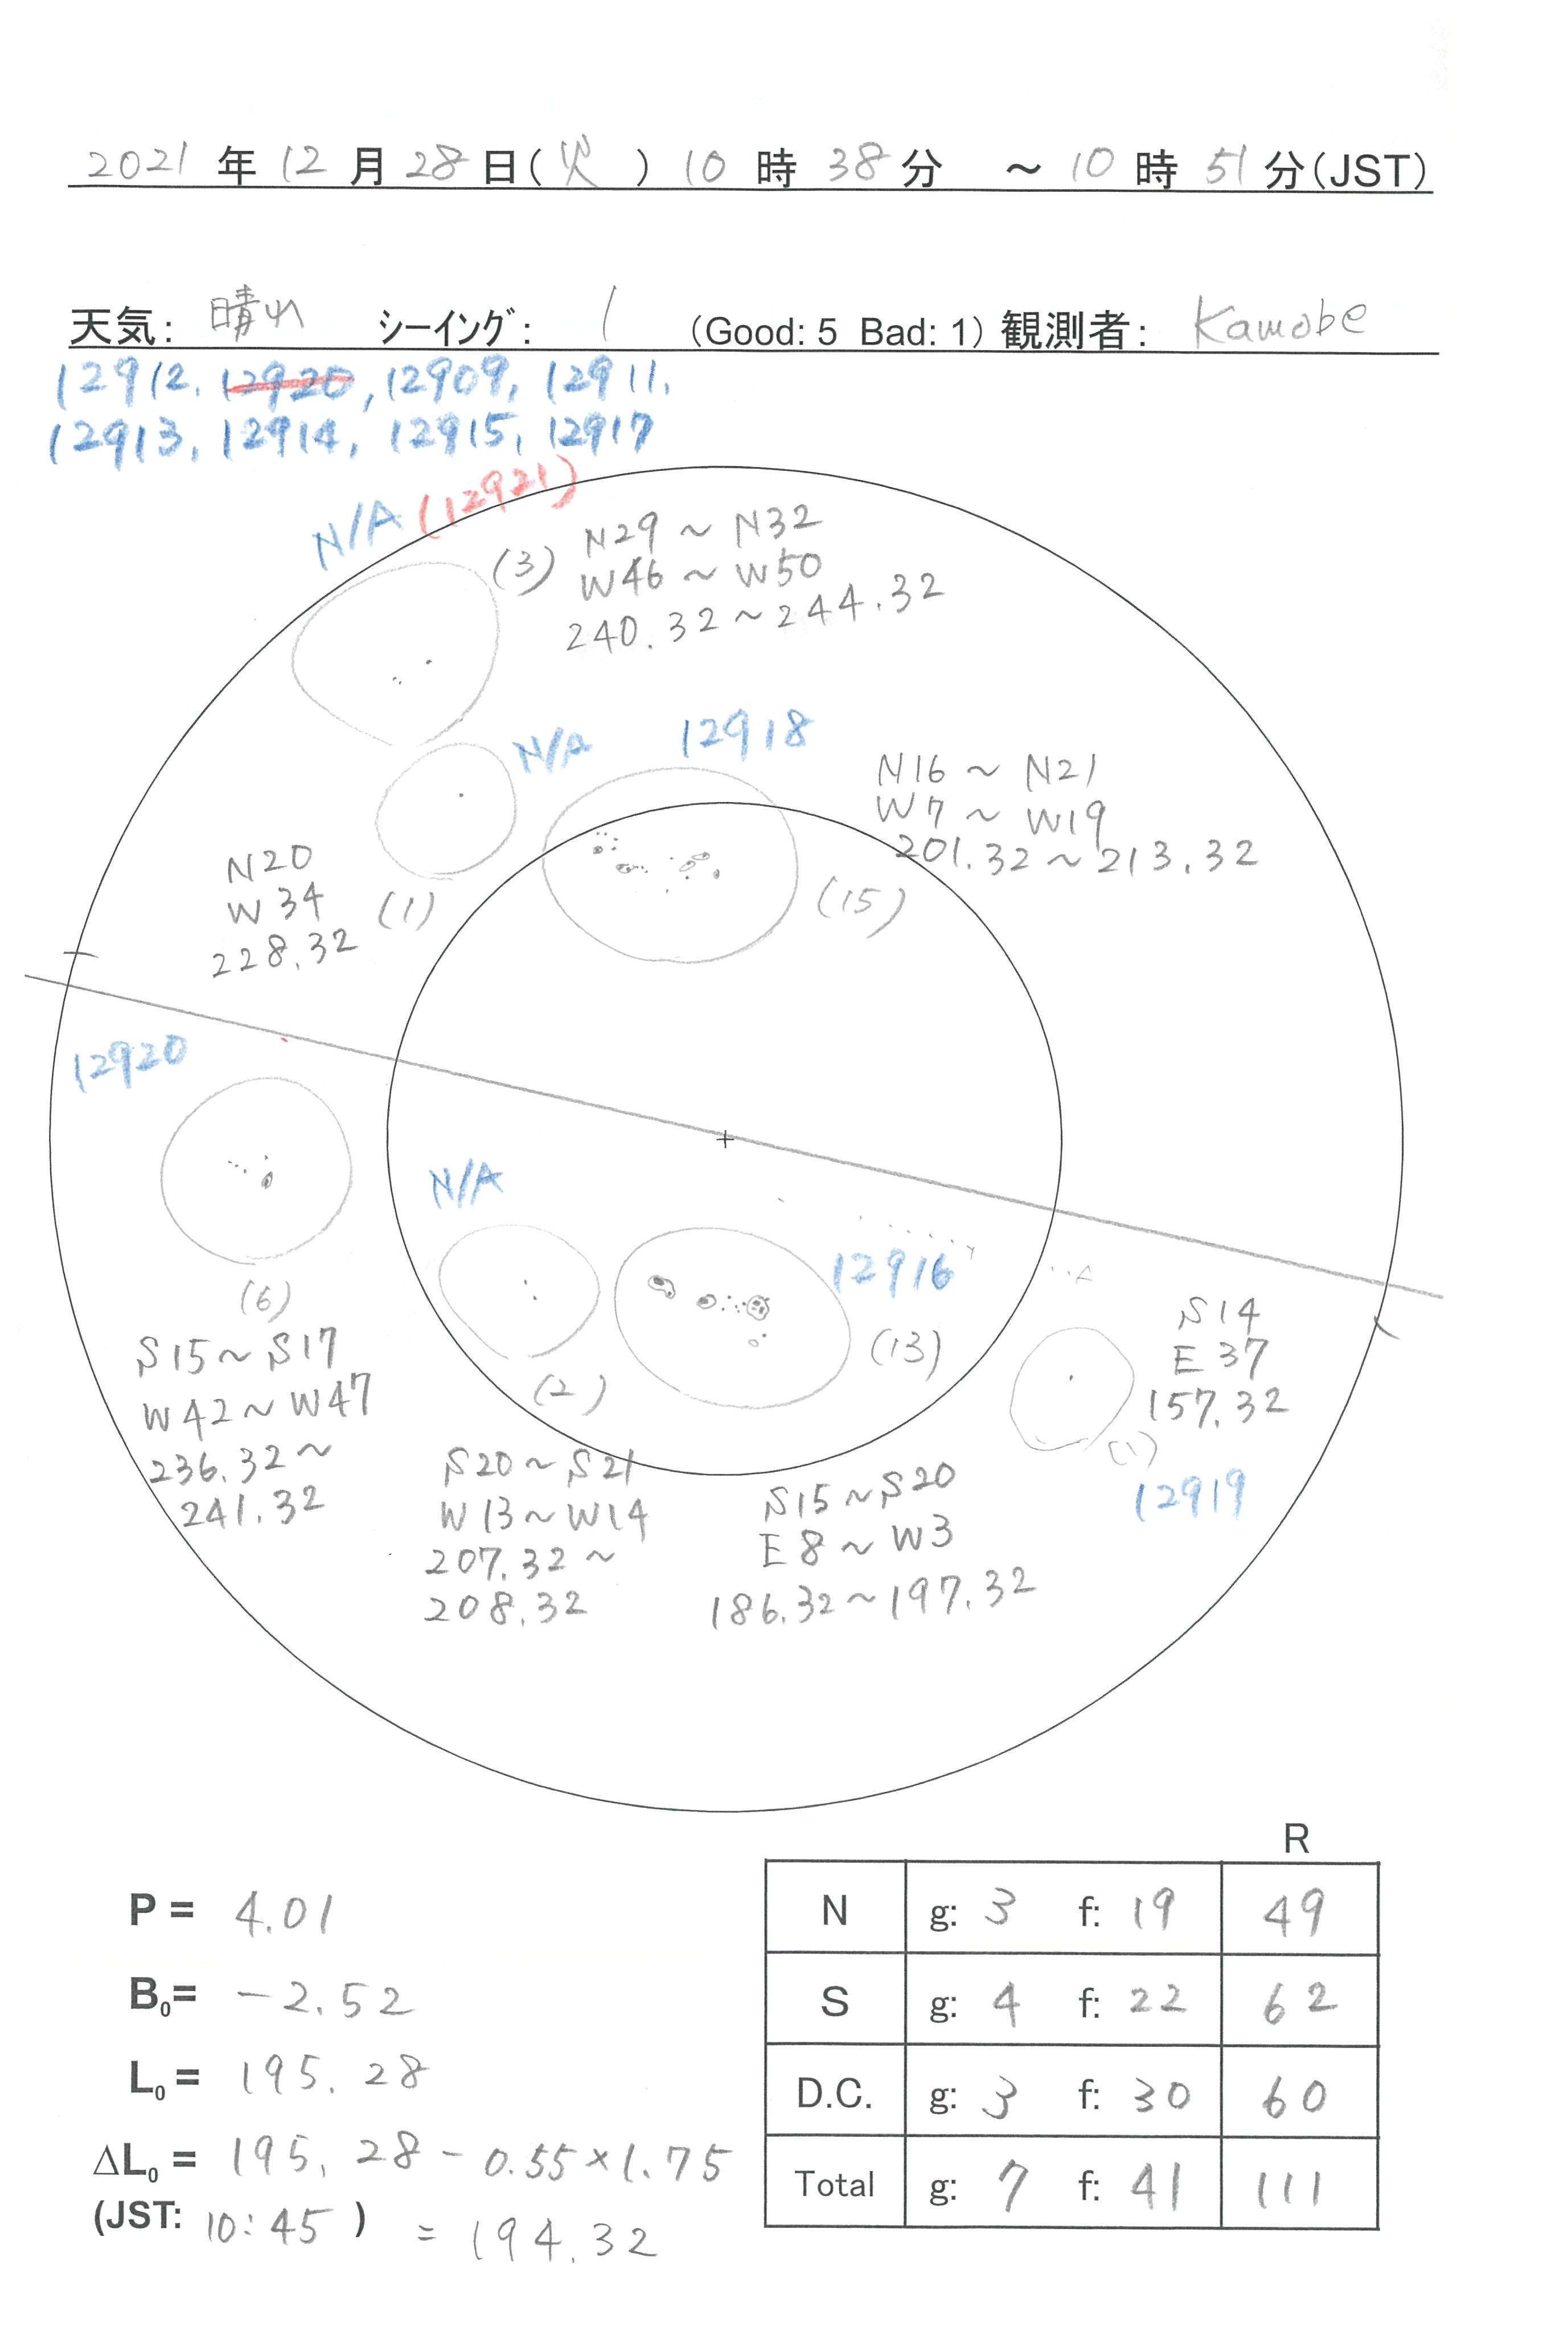 2021 年 12 月 28 日(火) 10 時 38 分 ～ 10 時 51 分(JST)
天気: 晴れ ｼｰｲﾝｸﾞ: 1 (Good: 5 Bad: 1) 観測者: Kamobe
12912, 12920, 12909, 12911,
12913, 12914, 12915, 12917
N/A (12921)
(3)
N29 ~ N32
W46 ~ W50
240.32 ~ 244.32
N/A
12918
N16 ~ N21
W7 ~ W19
201.32 ~ 213.32
(15)
N20
W34
228.32
(1)
12920
(6)
S15 ~ S17
W42 ~ W47
236.32 ~
241.32
N/A
(2)
S20 ~ S21
W13 ~ W14
207.32 ~
208.32
12916
(13)
S15 ~ S20
E8 ~ W3
186.32 ~ 197.32
S14
E37
157.32
(1)
12919
P = 4.01
B0= -2.52
L0 = 195.28
ΔL0 = 195.28 - 0.55×1.75
(JST: 10:45) = 194.32
R
N g: 3 f: 19 49
S g: 4 f: 22 62
D.C. g: 3 f: 30 60
Total g: 7 f: 41 111